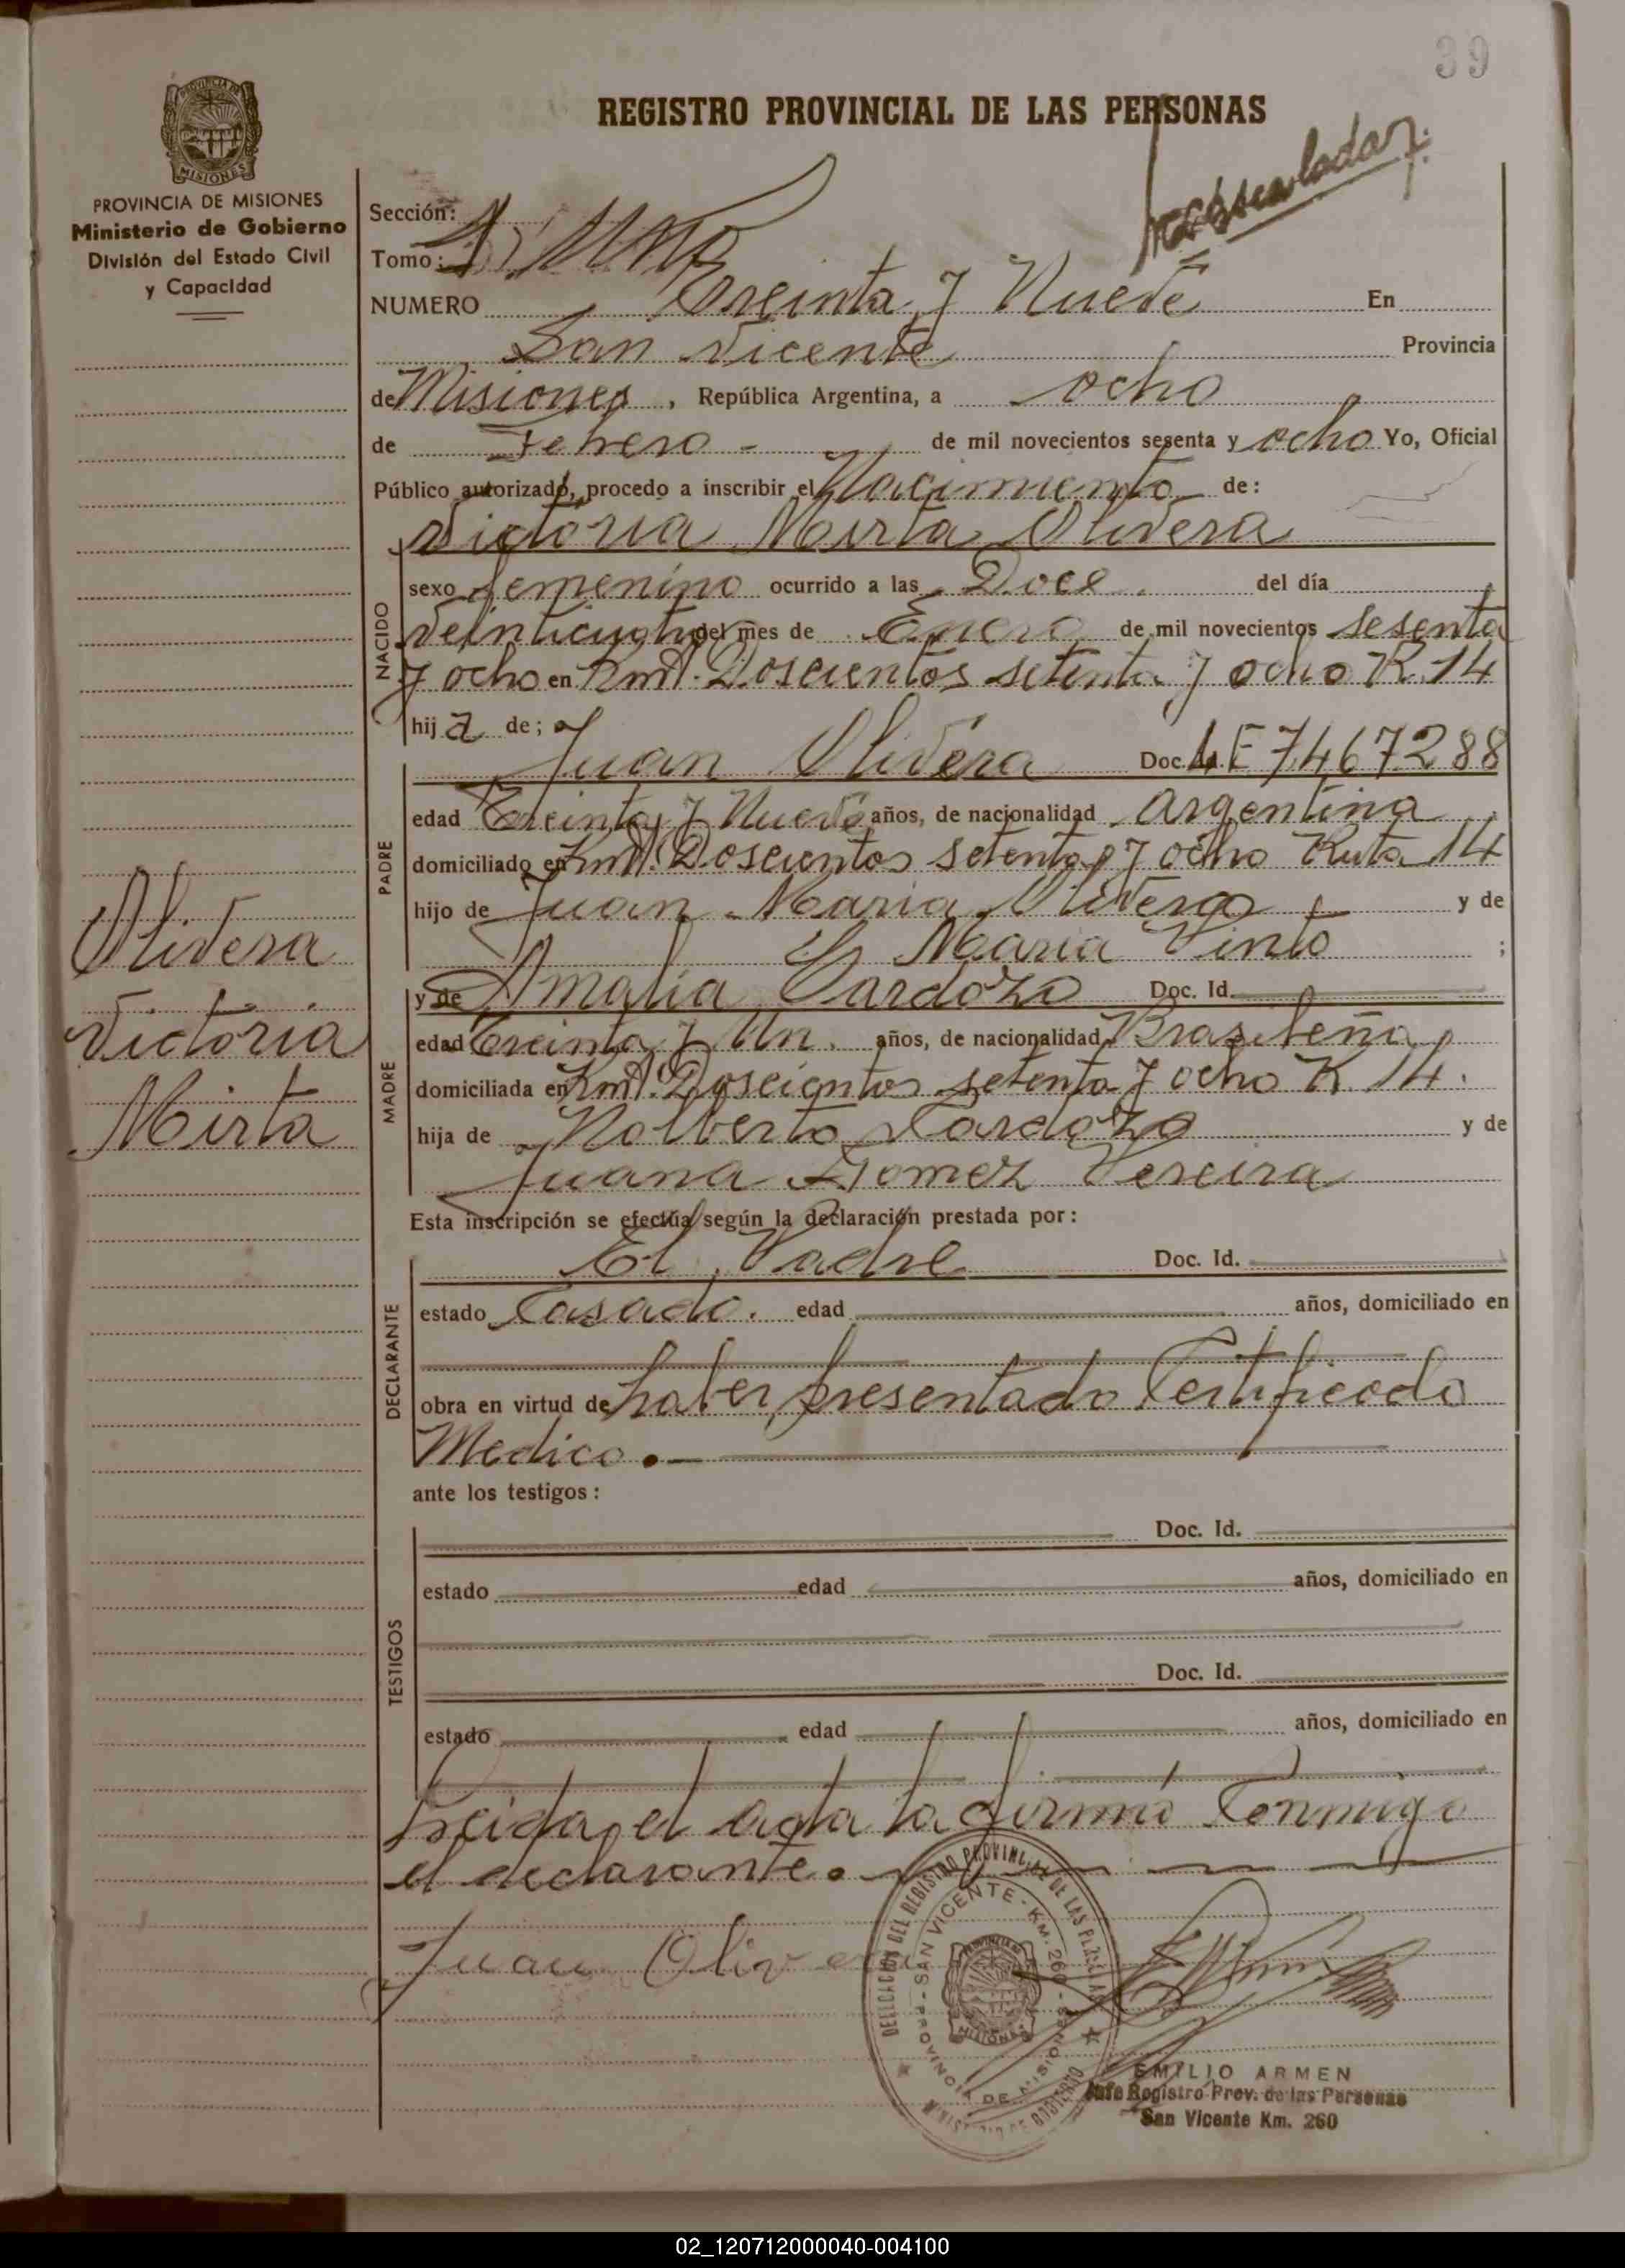 39
REGISTRO PROVINCIAL DE LAS PERSONAS
PROVINCIA DE MISIONES
MISIONES
PROVINCIA DE MISIONES
Ministerio de Gobierno
División del Estado Civil
y Capacidad
Sección:
Tomo: 1 Uno
NUMERO Treinta y Nueve En
San Vicente Provincia
de Misiones, República Argentina, a ocho
de Febrero - de mil novecientos sesenta y ocho Yo, Oficial
Público autorizado, procedo a inscribir el Nacimiento de:
Victoria Mirta Olivera
NACIDO
sexo femenino ocurrido a las Doce. del día
veinticuatro del mes de Enero de mil novecientos sesenta
y ocho en Kmt. Doscientos setenta y ocho R. 14
hija de;
Juan Olivera Doc. Id. LE 7467288
PADRE
edad Treinta y Nueve años, de nacionalidad Argentina
domiciliado en Kmt. Doscientos setenta y ocho Ruta 14
hijo de Juan Maria Olivera y de
Maria Pinto ;
y de Amalia Cardozo Doc. Id.
MADRE
edad Treinta y Un. años, de nacionalidad Brasileña
domiciliada en Kmt. Doscientos setenta y ocho R 14.
hija de Nolberto Cardozo y de
Juana Gomez Pereira
Olivera
Victoria
Mirta
Esta inscripción se efectúa según la declaración prestada por:
El Padre Doc. Id.
DECLARANTE
estado Casado. edad años, domiciliado en
obra en virtud de haber presentado Certificado
Medico.-
ante los testigos:
TESTIGOS
Doc. Id.
estado edad años, domiciliado en
Doc. Id.
estado edad años, domiciliado en
Leida el acta la firmó Conmigo
el declarante.
Juan Olivera
DELEGACION DEL REGISTRO PROVINCIAL DE LAS PERSONAS
SAN VICENTE - KM. 260 - PROVINCIA DE MISIONES
MINISTERIO DE GOBIERNO
EMILIO ARMEN
Jefe Registro Prov. de las Personas
San Vicente Km. 260
02_120712000040-004100